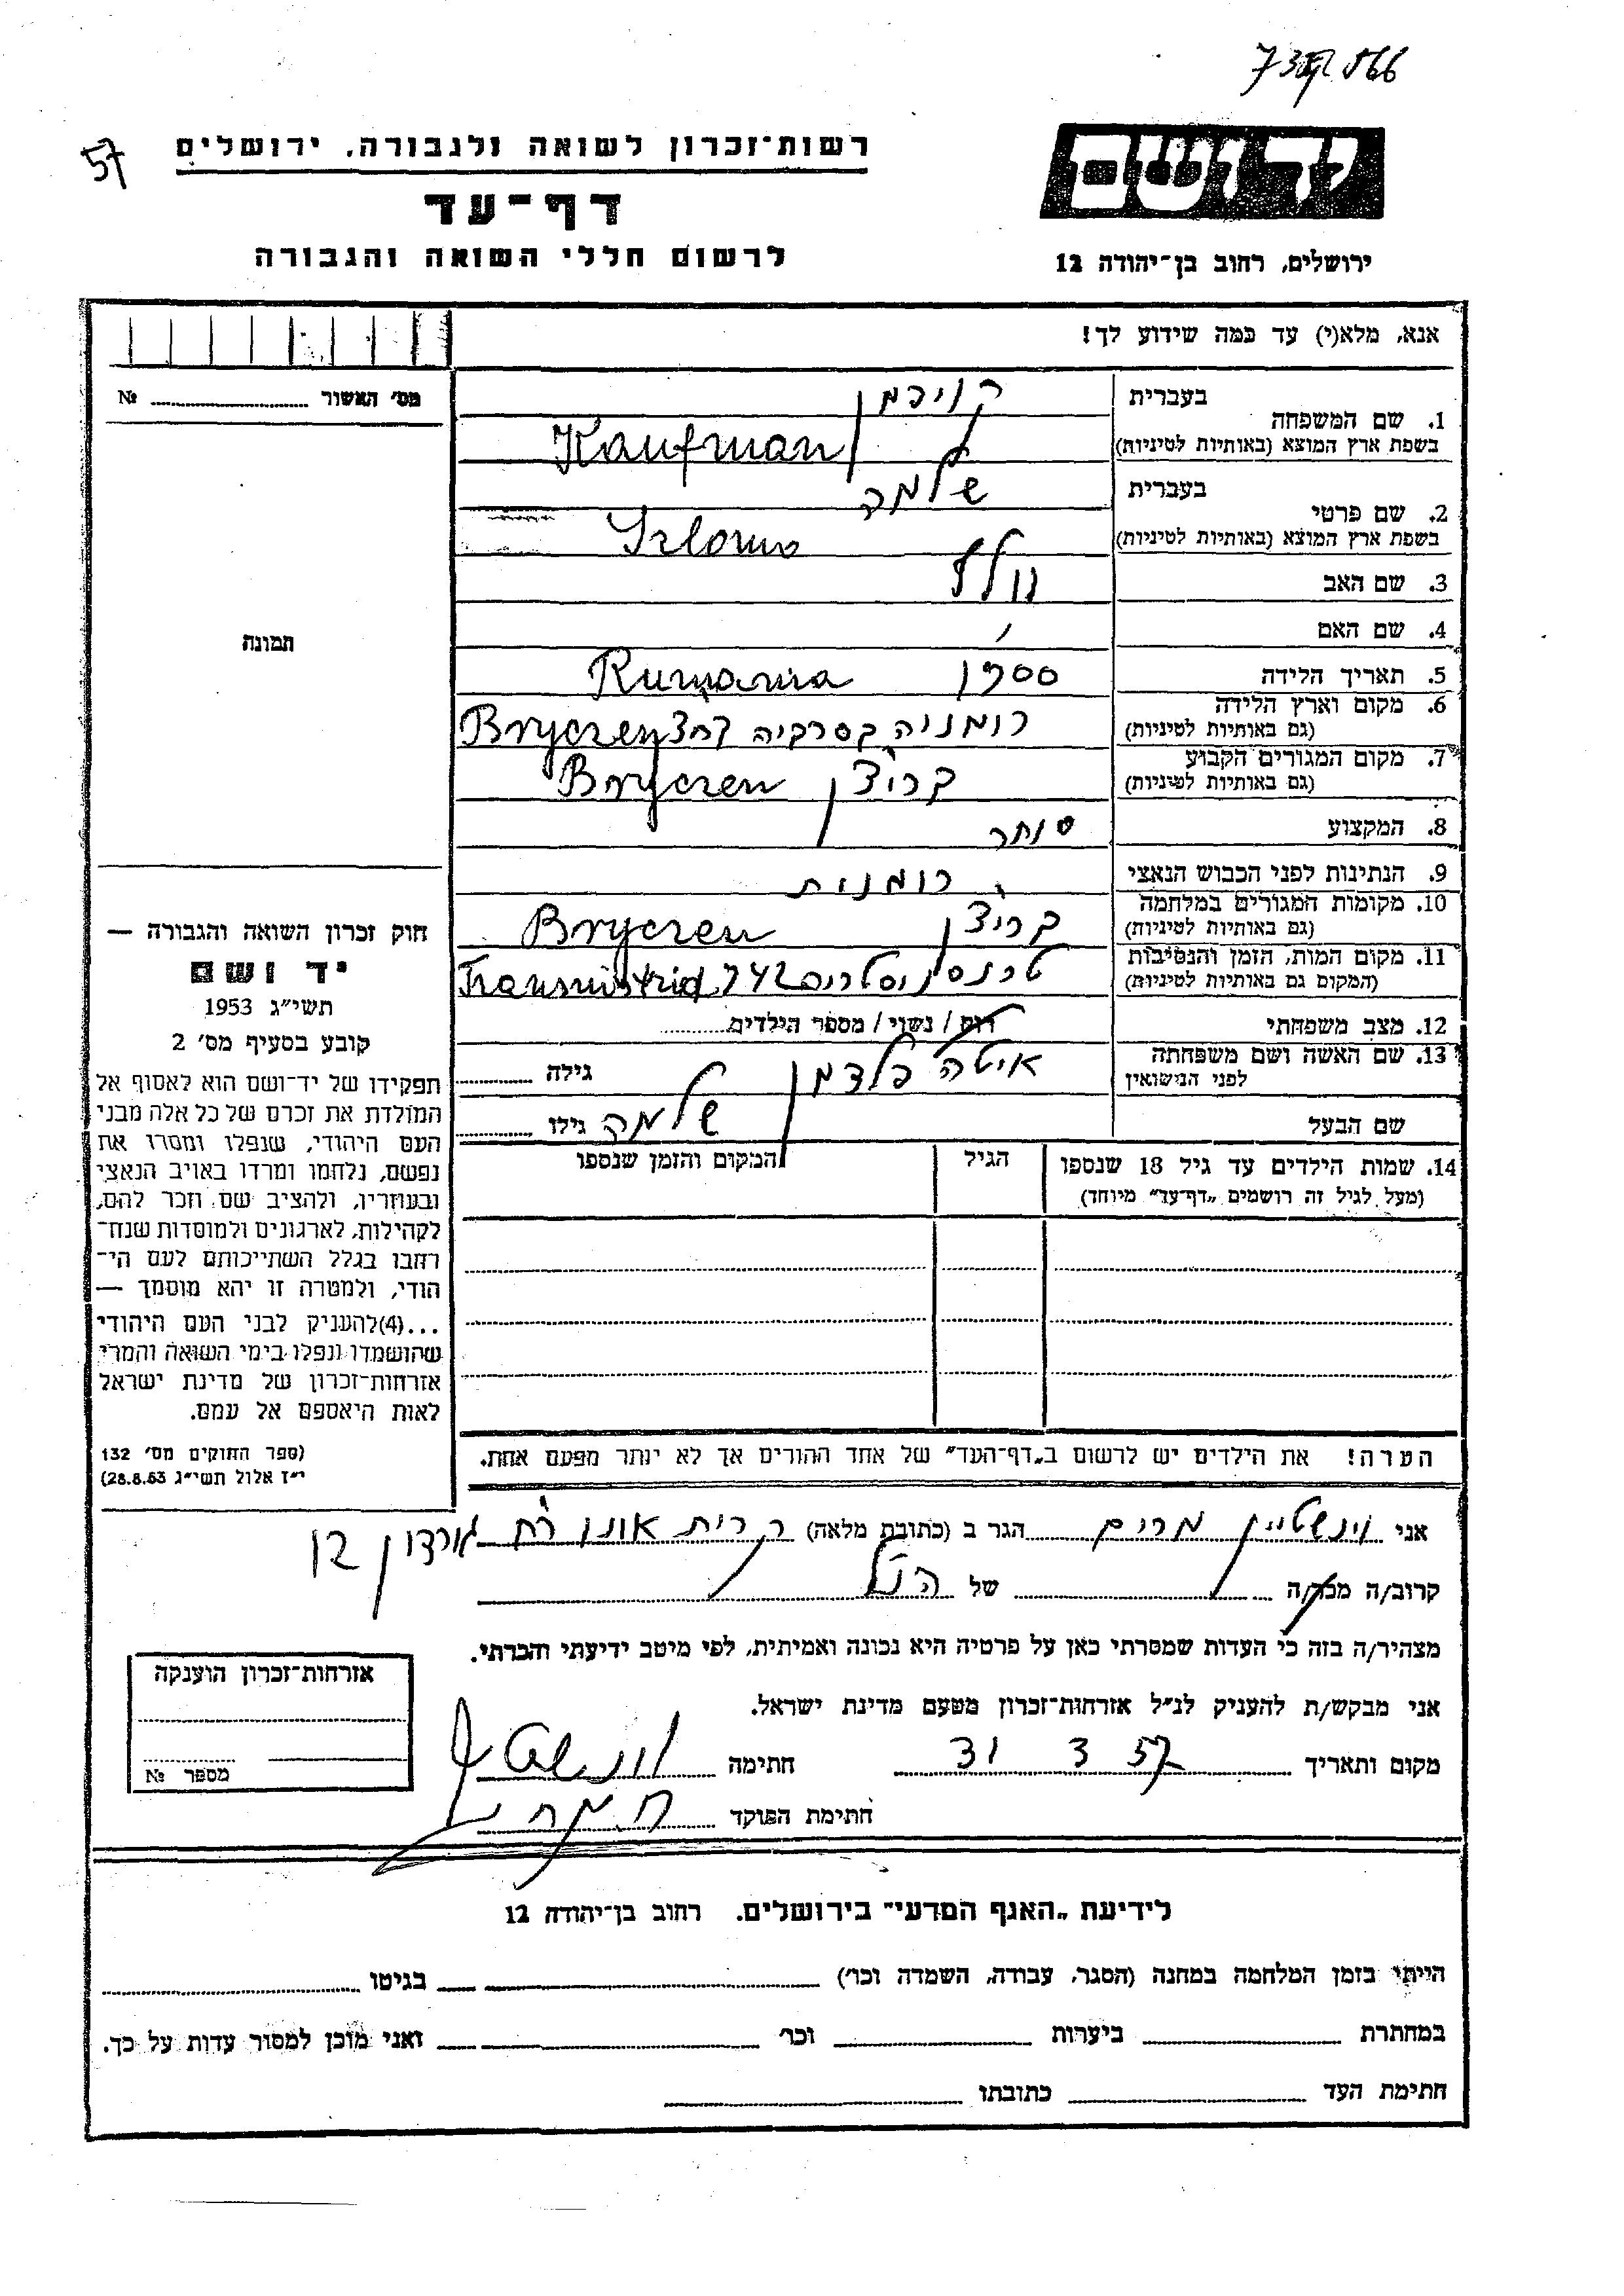 57
רשות־זכרון לשואה ולגבורה. ירושלים
דף־עד
לרשום חללי השואה והגבורה
יד ושם
ירושלים, רחוב בן־יהודה 12
אנא, מלא(י) עד כמה שידוע לך!
מס' האשור № 
תמונה
1. שם המשפחה
בעברית
בשפת ארץ המוצא (באותיות לטיניות)
Kaufman
2. שם פרטי
בעברית שלמה
בשפת ארץ המוצא (באותיות לטיניות) Szloma
3. שם האב וולף
4. שם האם
5. תאריך הלידה Rumania
6. מקום וארץ הלידה
(גם באותיות לטיניות)
רומניה Bryczen
7. מקום המגורים הקבוע
(גם באותיות לטיניות)
בריצ'ן Bryczen
8. המקצוע סוחר
9. הנתינות לפני הכבוש הנאצי רומנית
10. מקומות המגורים במלחמה
(גם באותיות לטיניות)
בריצ'ן Bryczen
11. מקום המות, הזמן והנסיבות
(המקום גם באותיות לטיניות)
Transnistria 942
12. מצב משפחתי רוק / נשוי / מספר הילדים
13. שם האשה ושם משפחתה
לפני הנישואין
איטה פלדמן גילה
שם הבעל שלמה גילו
14. שמות הילדים עד גיל 18 שנספו
(מעל לגיל זה רושמים „דף־עד" מיוחד)
הגיל
המקום והזמן שנספו
חוק זכרון השואה והגבורה —
יד ושם
תשי"ג 1953
קובע בסעיף מס' 2
תפקידו של יד־ושם הוא לאסוף אל
המולדת את זכרם של כל אלה מבני
העם היהודי, שנפלו ומסרו את
נפשם, נלחמו ומרדו באויב הנאצי
ובעוזריו, ולהציב שם וזכר להם,
לקהילות, לארגונים ולמוסדות שנח־
רחבו בגלל השתייכותם לעם הי־
הודי, ולמטרה זו יהא מוסמך —
...(4)להעניק לבני העם היהודי
שהושמדו ונפלו בימי השואה והמרי
אזרחות־זכרון של מדינת ישראל
לאות היאספם אל עמם.
(ספר החוקים מס' 132
י"ז אלול תשי"ג 28.8.53)
הערה! את הילדים יש לרשום ב„דף־העד" של אחד ההורים אך לא יותר מפעם אחת.
אני וינשטיין מרים הגר ב (כתובת מלאה) קרית אונו רח' גורדון 12
קרוב/ה מכר/ה של הנ"ל
מצהיר/ה בזה כי העדות שמסרתי כאן על פרטיה היא נכונה ואמיתית, לפי מיטב ידיעתי והכרתי.
אני מבקש/ת להעניק לנ"ל אזרחות־זכרון מטעם מדינת ישראל.
מקום ותאריך 31 3 57 חתימה
חתימת הפוקד
אזרחות־זכרון הוענקה
מספר №
לידיעת „האגף המדעי" בירושלים. רחוב בן־יהודה 12
הייתי בזמן המלחמה במחנה (הסגר, עבודה, השמדה וכו') בגיטו
במחתרת ביערות וכו' ואני מוכן למסור עדות על כך.
חתימת העד כתובתו